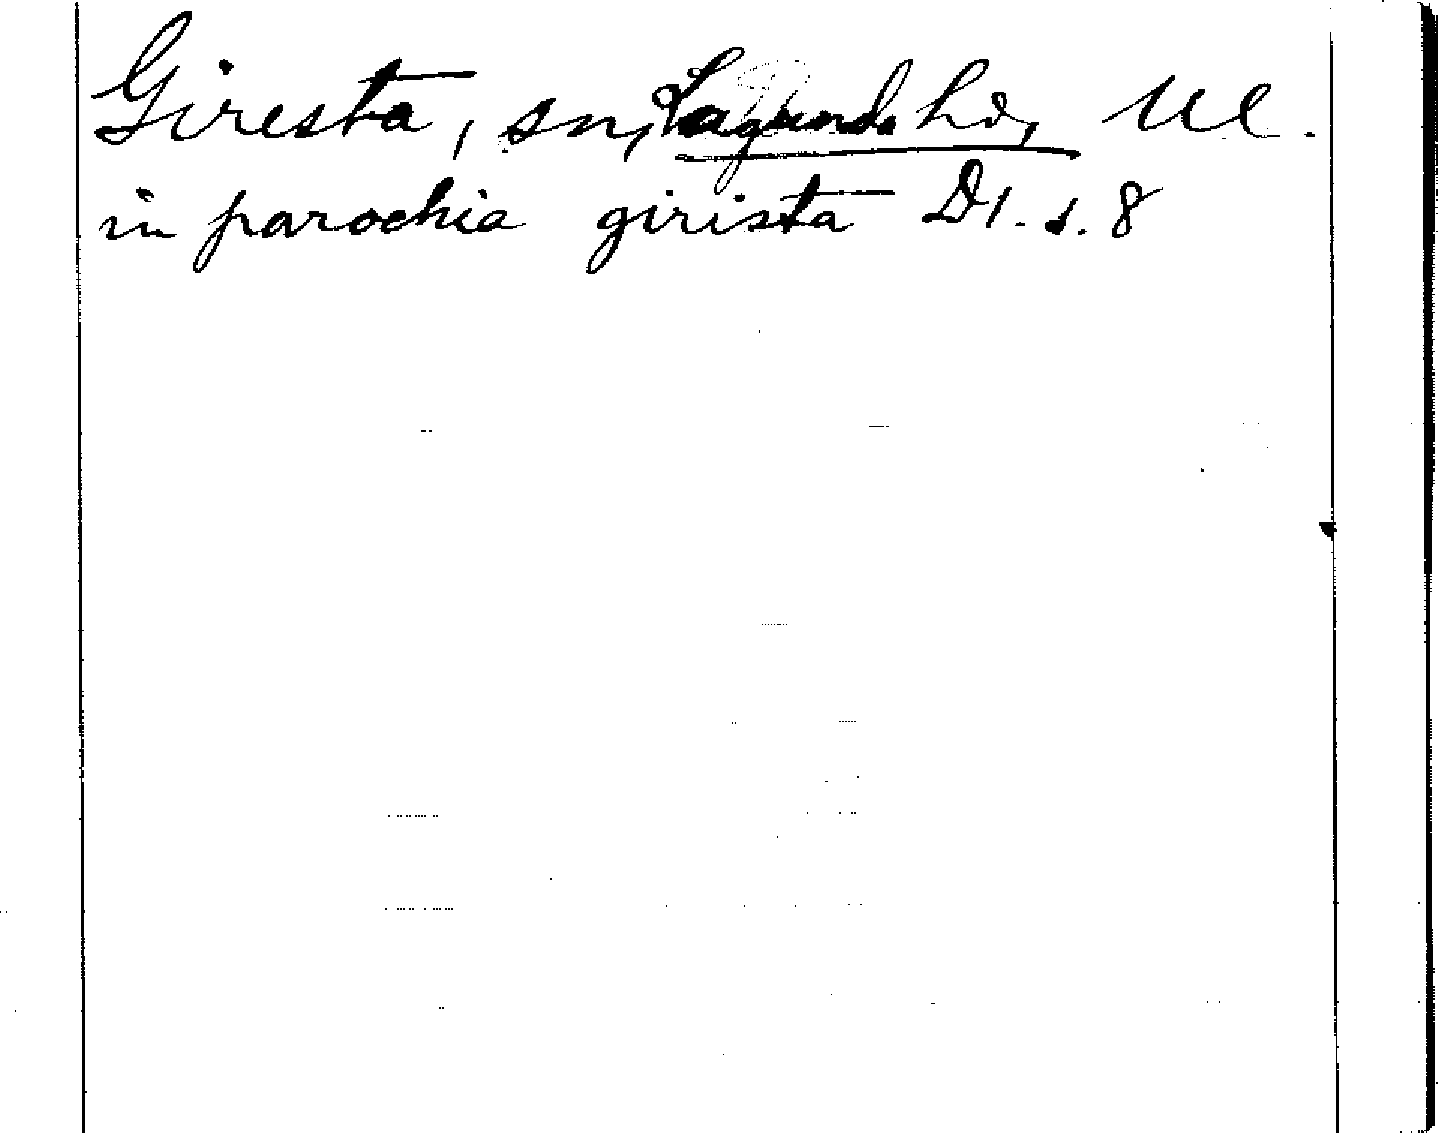 Giresta, sn, Lagunda hd, Ul.
in parochia girista D1. s. 8